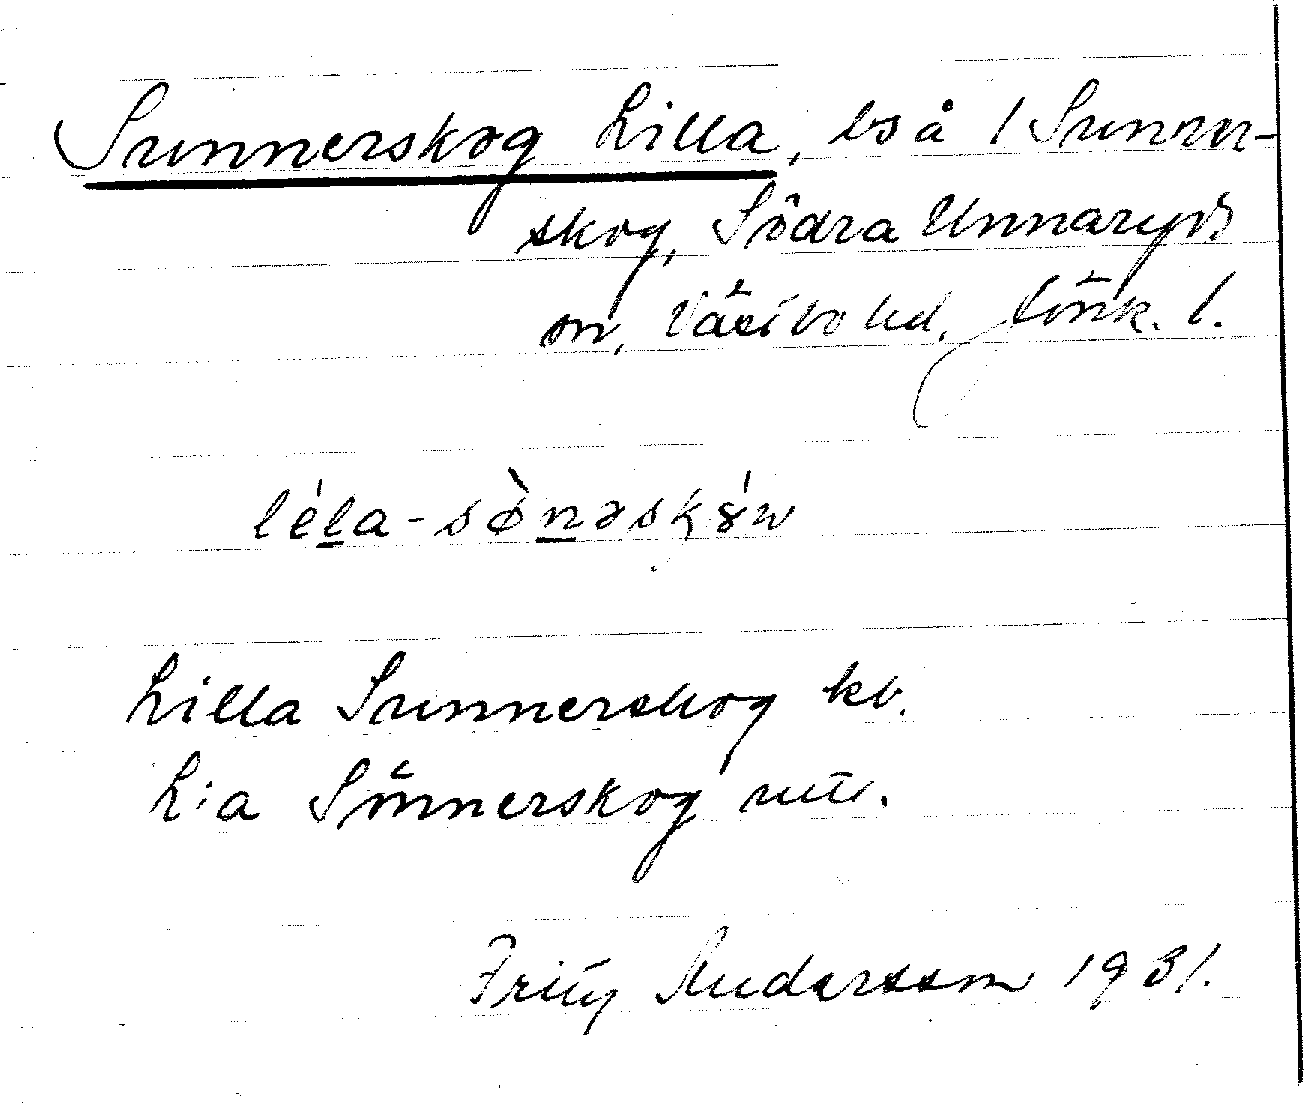 Sunnerskog Lilla, bs å 1 Sunner-
skog, Södra Unnaryds
sn, Västbo hd, Jönk. l.
léla-sø̀nəskɤ́w
Lilla Sunnerskog kb.
L:a Sönnerskog
Fritz Andersson 1931.